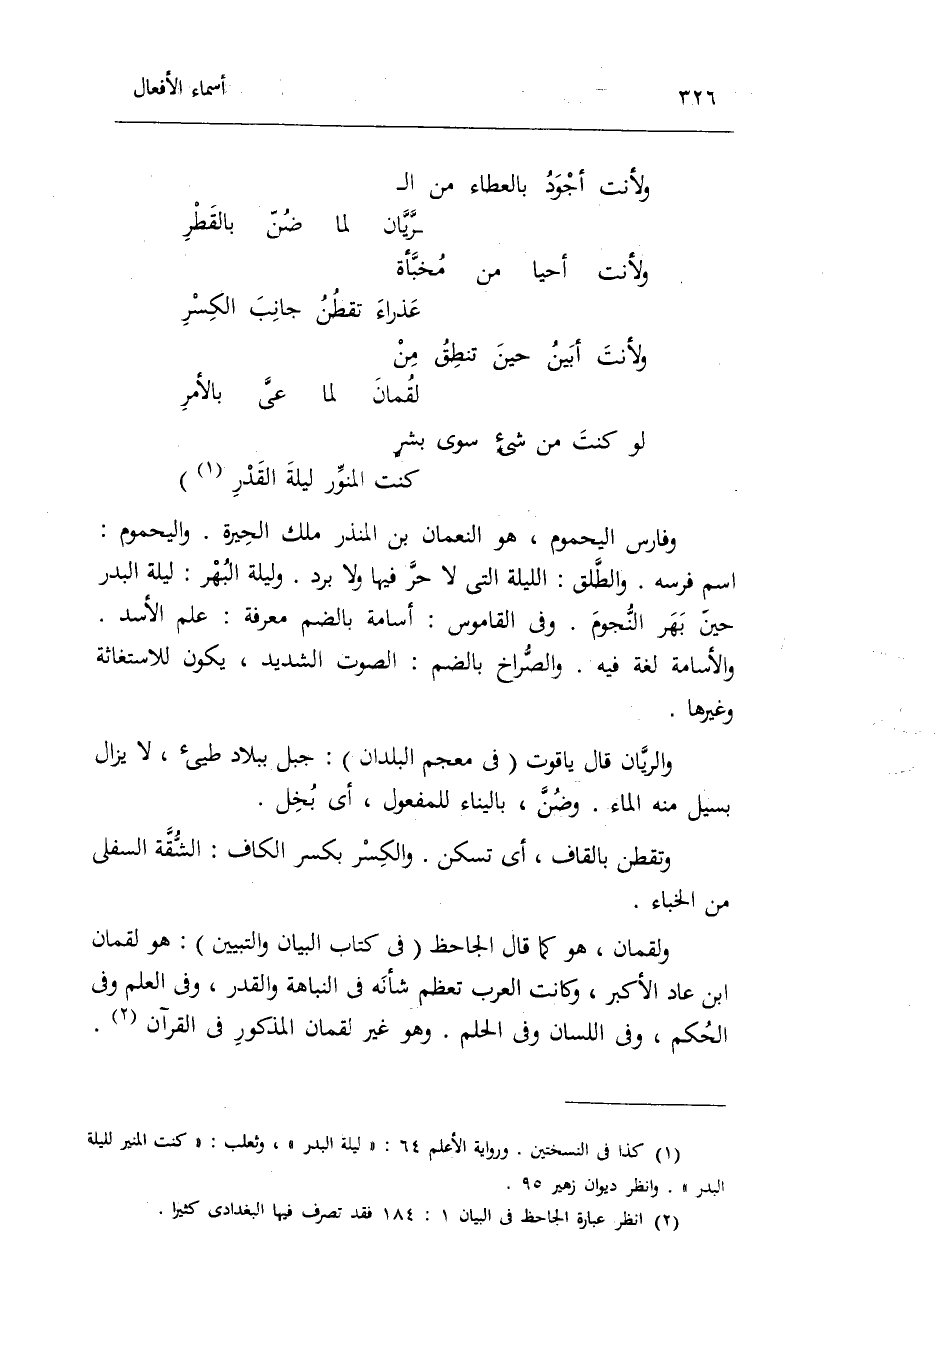 ٣٢٦
أسماء الأفعال
ولأنت أجْوَدُ بالعطاء من الـ
ـرَّيَّان لما ضُنّ بالقَطْرِ
ولأنت أحيا من مُخبَّأة
عَذراءَ تقطُنُ جانِبَ الكِسْرِ
ولأنتَ أبَينُ حينَ تنطِقُ مِنْ
لقُمانَ لما عىَّ بالأمرِ
لو كنتَ من شىءٍ سوى بشرٍ
كنت المنوِّر ليلةَ القَدْرِ (١) )
وفارس اليحموم ، هو النعمان بن المنذر ملك الحِيرة . واليحموم :
اسم فرسه . والطَّلق : الليلة التى لا حرَّ فيها ولا برد . وليلة البُهْر : ليلة البدر
حينّ بَهَر النُّجومَ . وفى القاموس : أسامة بالضم معرفة : علم الأسد .
والأسامة لغة فيه . والصُّراخ بالضم : الصوت الشديد ، يكون للاستغاثة
وغيرها .
والريَّان قال ياقوت ( فى معجم البلدان ) : جبل ببلاد طيىء ، لا يزال
بسيل منه الماء . وضُنَّ ، باليناء للمفعول ، أى بُخِل .
وتقطن بالقاف ، أى تسكن . والكِسْر بكسر الكاف : الشُّقَّة السفلى
من الخباء .
ولقمان ، هو كما قال الجاحظ ( فى كتاب البيان والتبيين ) : هو لقمان
ابن عاد الأكبر ، وكانت العرب تعظم شأنَه فى النباهة والقدر ، وفى العلم وفى
الحُكم ، وفى اللسان وفى الحلم . وهو غير لقمان المذكورِ فى القرآن (٢) .
(١) كذا فى النسختين . ورواية الأعلم ٦٤ : « ليلة البدر » ، وثعلب : « كنت المنير لليلة
البدر » . وانظر ديوان زهير ٩٥ .
(٢) انظر عبارة الجاحظ فى البيان ١ : ١٨٤ فقد تصرف فيها البغدادى كثيرا .